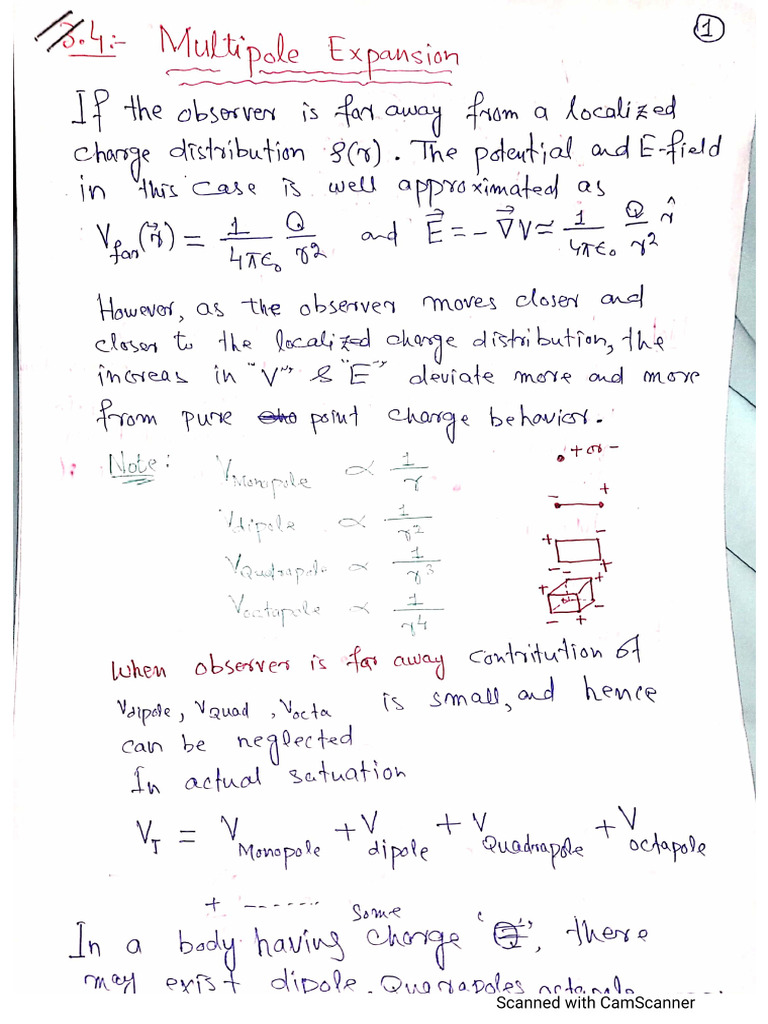 3.4:- Multipole Expansion
①
If the observer is far away from a localized
charge distribution ρ(r). The potential and E-field
in this case is well approximated as
V_far(r⃗) = 1/4πϵ₀ Q/r² and E⃗ = -∇⃗V ≃ 1/4πϵ₀ Q/r² r̂
However, as the observer moves closer and
closer to the localized charge distribution, the
increas in "V" & "E" deviate more and more
from pure point charge behavior.
1: Note: V_Monopole ∝ 1/r
• + or -
V_dipole ∝ 1/r²
- +
V_Quadrapole ∝ 1/r³
+ - - +
V_octapole ∝ 1/r⁴
+ - - + - + -
When observer is far away contritution of
V_dipole, V_Quad, V_octa is small, and hence
can be neglected
In actual satuation
V_T = V_Monopole + V_dipole + V_Quadrapole + V_octapole
+ -------
In a body having some charge 'Q', there
may exist dipole. Quadrapoles octapole
Scanned with CamScanner